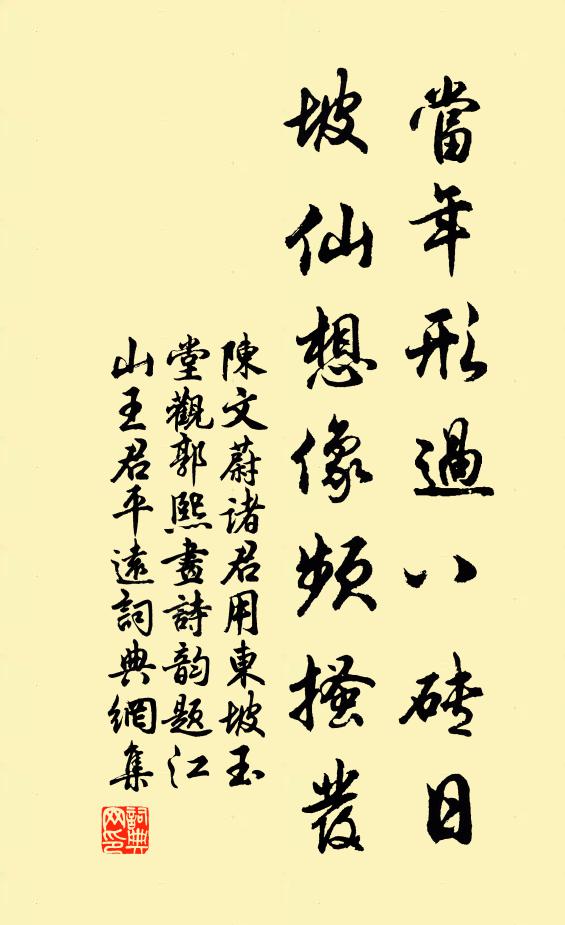 當年形過八磚日
坡仙想像頻搔發
陳文蔚諸君用東坡玉
堂觀郭熙畫詩韵題江
山王君平遠詞典網集
詞典
网印